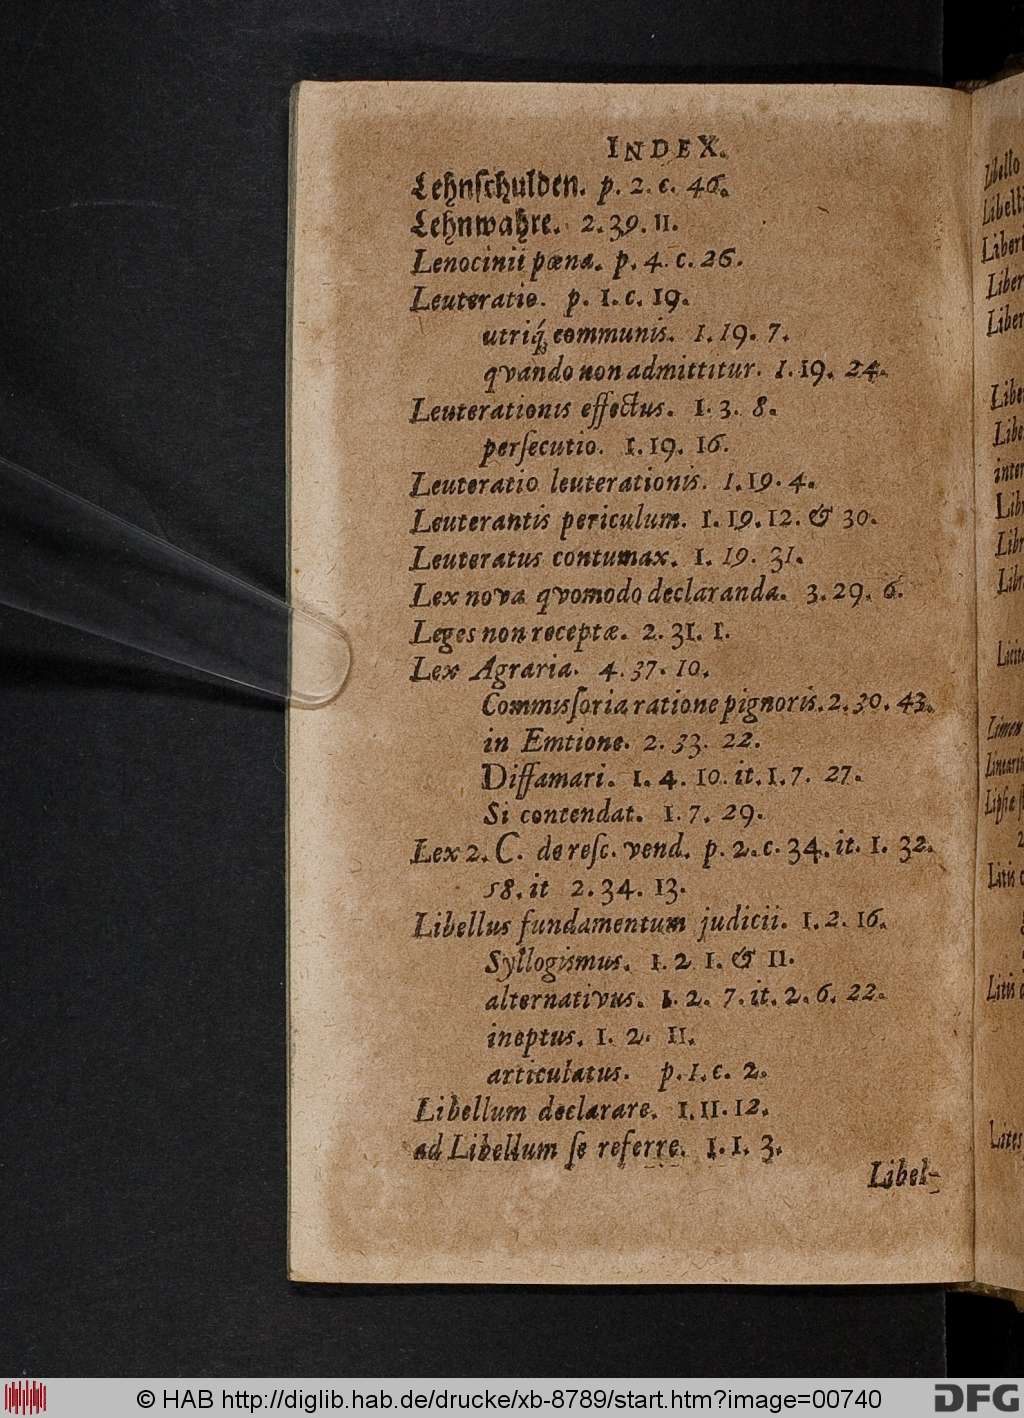 INDEX.
Lehnſchulden. p. 2. c. 46.
Lehnwahre. 2. 39. 11.
Lenocinii pœna. p. 4. c. 26.
Leuteratio. p. 1. c. 19.
utriq́; communis. 1. 19. 7.
qvando non admittitur. 1. 19. 24.
Leuterationis effectus. 1. 3. 8.
perſecutio. 1. 19. 16.
Leuteratio leuterationis. 1. 19. 4.
Leuterantis periculum. 1. 19. 12. & 30.
Leuteratus contumax. 1. 19. 31.
Lex nova qvomodo declaranda. 3. 29. 6.
Leges non receptæ. 2. 31. 1.
Lex Agraria. 4. 37. 10.
Commisſoria ratione pignoris. 2. 30. 43.
in Emtione. 2. 33. 22.
Diffamari. 1. 4. 10. it. 1. 7. 27.
Si contendat. 1. 7. 29.
Lex 2. C. de reſc. vend. p. 2. c. 34. it. 1. 32.
58. it 2. 34. 13.
Libellus fundamentum judicii. 1. 2. 16.
Syllogismus. 1. 2 1. & 11.
alternativus. 1. 2. 7. it. 2. 6. 22.
ineptus. 1. 2. 11.
articulatus. p. 1. c. 2.
Libellum declarare. 1. 11. 12.
ad Libellum ſe referre. 1. 1. 3.
Libel-
Libello
Litis
Litis
Lites
© HAB http://diglib.hab.de/drucke/xb-8789/start.htm?image=00740
DFG